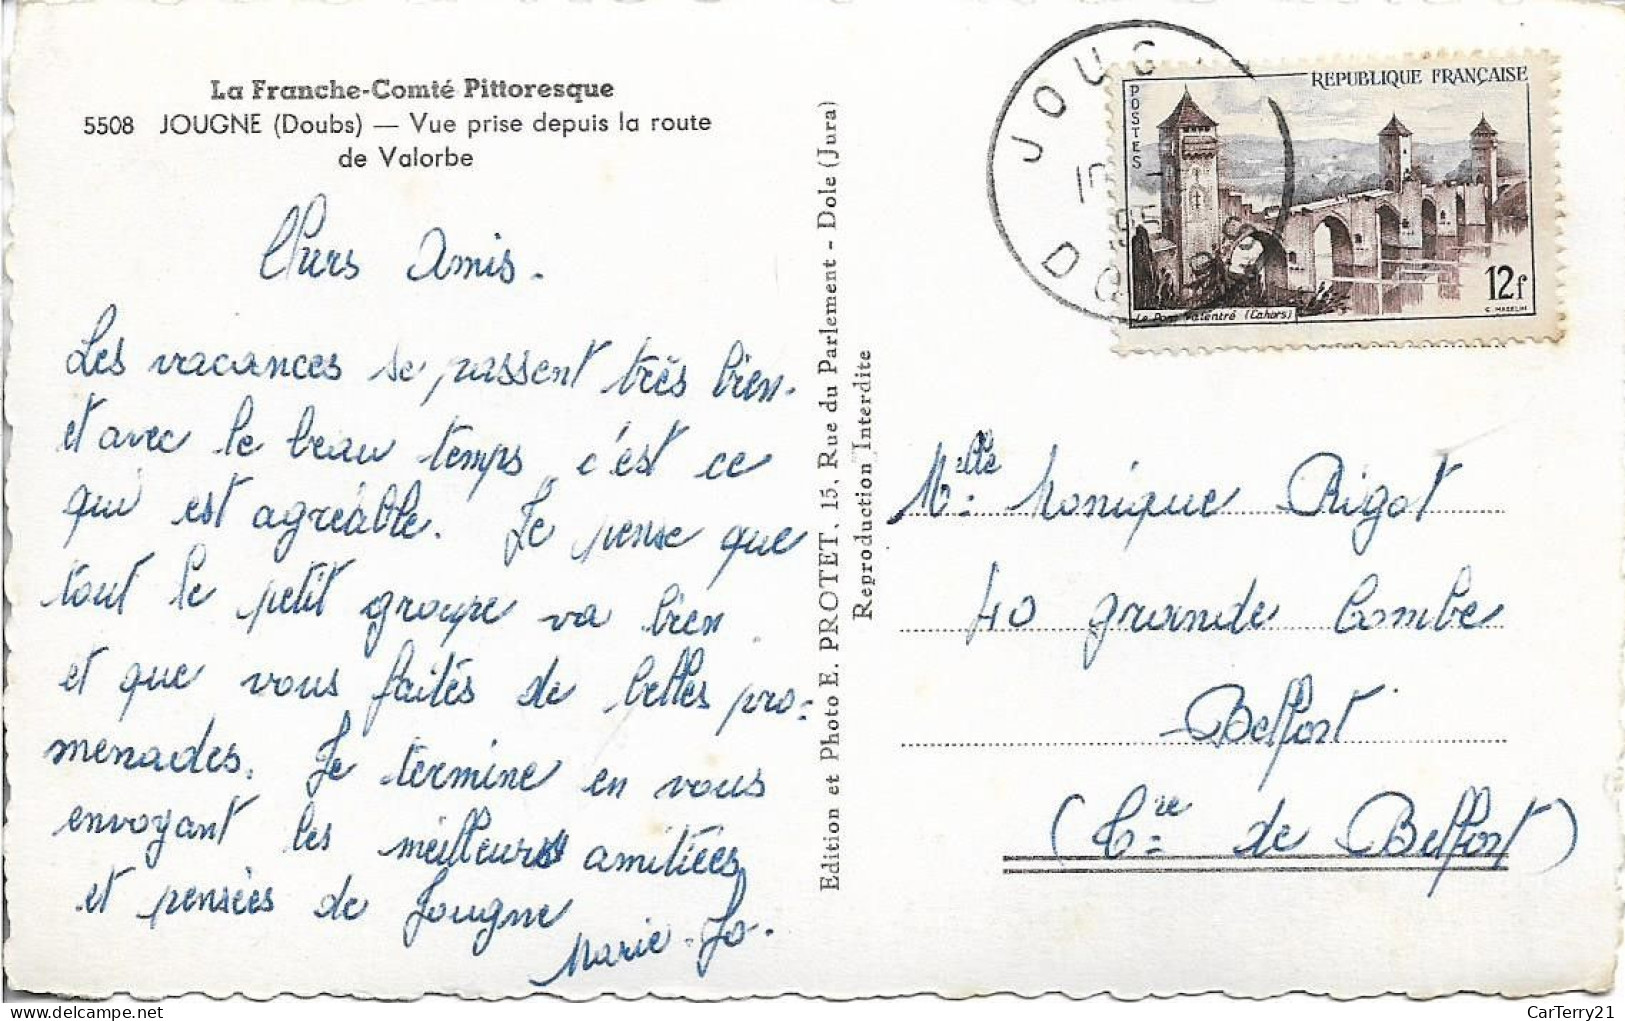 La Franche-Comté Pittoresque
5508 JOUGNE (Doubs) — Vue prise depuis la route
de Valorbe
Chers Amis.
Les vacances se passent très bien.
et avec le beau temps c'est ce
qui est agréable. Je pense que
tout le petit groupe va bien
et que vous faités de belles pro=
menades. Je termine en vous
envoyant les meilleurs amitiées
et pensées de Jougne
Marie-Jo.
Edition et Photo E. PROTET, 15, Rue du Parlement - Dole (Jura)
Reproduction Interdite
JOUG
DOUBS
REPUBLIQUE FRANÇAISE
POSTES
12f
Le Pont Valentré (Cahors)
C. MAZELIN
Melle Monique Rigot
40 grande Combe
Belfort
(Tre de Belfort)
CarTerry21